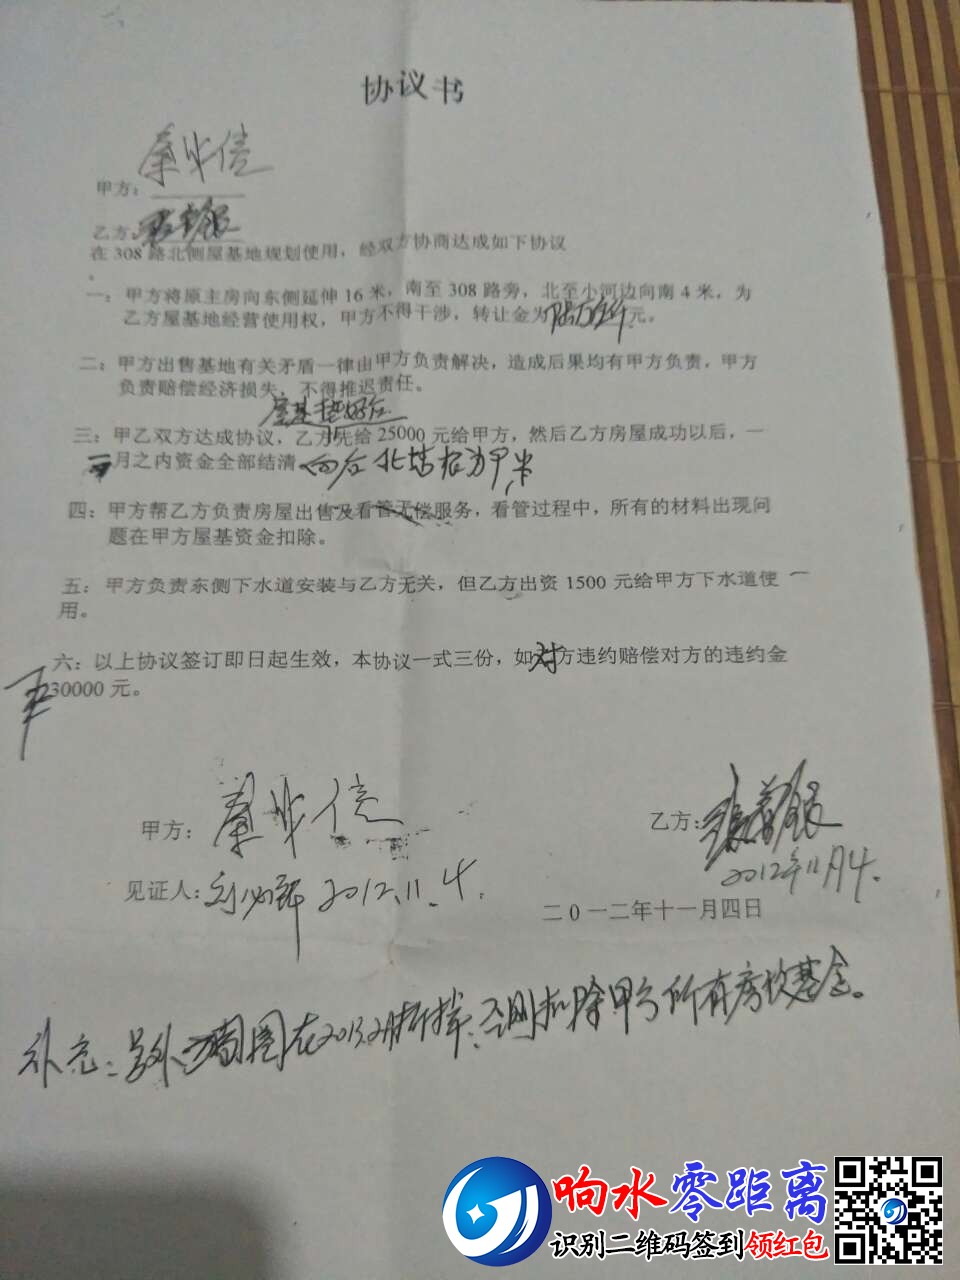 协议书
甲方：
乙方：
在 308 路北侧屋基地规划使用，经双方协商达成如下协议
一：甲方将原主房向东侧延伸 16 米，南至 308 路旁，北至小河边向南 4 米，为
乙方屋基地经营使用权，甲方不得干涉，转让金为陆万伍仟元。
二：甲方出售基地有关矛盾一律由甲方负责解决，造成后果均有甲方负责，甲方
负责赔偿经济损失，不得推迟责任。
屋基垫好后
三：甲乙双方达成协议，乙方先给 25000 元给甲方，然后乙方房屋成功以后，一
月之内资金全部结清
四：甲方帮乙方负责房屋出售及看管无偿服务，看管过程中，所有的材料出现问
题在甲方屋基资金扣除。
五：甲方负责东侧下水道安装与乙方无关，但乙方出资 1500 元给甲方下水道使
用。
六：以上协议签订即日起生效，本协议一式三份，如对方违约赔偿对方的违约金
30000 元。
甲方：
乙方：
2012年11月4.
见证人： 2012.11.4.
二0一二年十一月四日
补充：另外 周围在2013 否则扣除甲方所有房屋基金。
响水零距离
识别二维码签到领红包